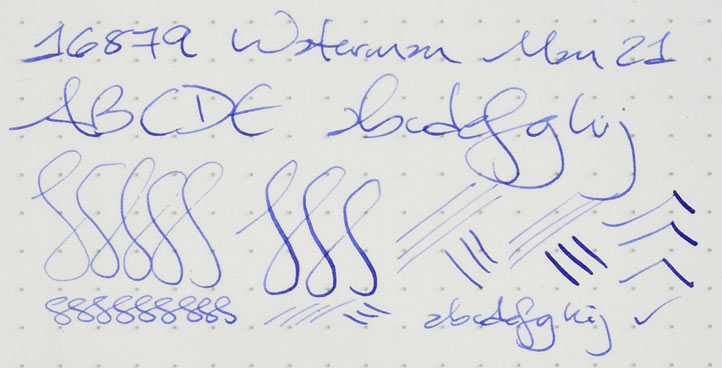 16879 Waterman Mon 21
ABCDE abcdefghij
888888888
abcdefghij ✓